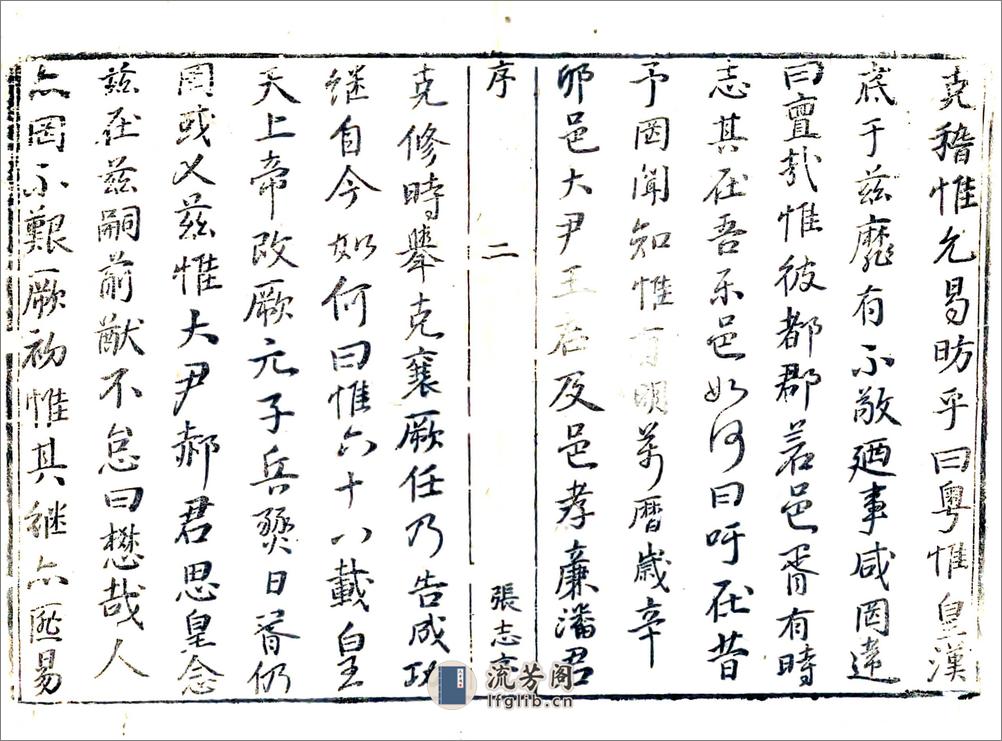 克稽惟允曷昉乎曰粤惟皇漢
底于茲靡有不敬廼事咸罔違
曰亶哉惟彼都郡若邑胥有時
志其在吾樂邑如何曰吁在昔
予罔聞知惟有明萬曆歲辛
卯邑大尹王君及邑孝廉潘君
序 二 張志
克修時舉克襄厥任乃告成功
繼自今如何曰惟六十八載皇
天上帝改厥元子兵燹日胥仍
罔或乂茲惟大尹郝君思皇念
茲在茲嗣前猷不怠曰懋哉人
亦罔不艱厥初惟其継亦匪易
流芳阁
lfglib.cn